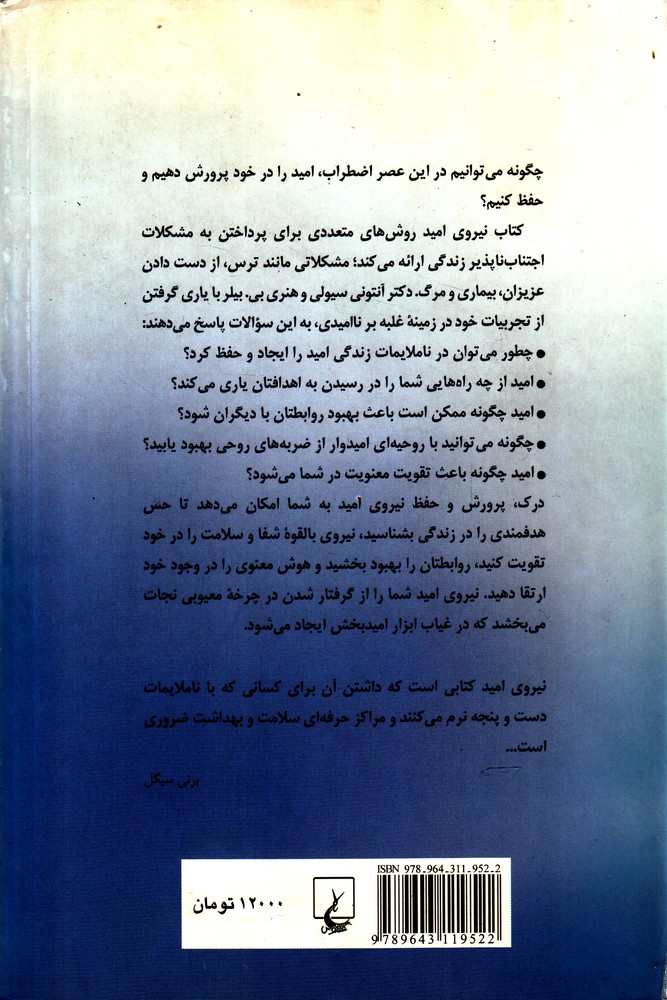 چگونه می‌توانیم در این عصر اضطراب، امید را در خود پرورش دهیم و
حفظ کنیم؟
کتاب نیروی امید روش‌های متعددی برای پرداختن به مشکلات
اجتناب‌ناپذیر زندگی ارائه می‌کند؛ مشکلاتی مانند ترس، از دست دادن
عزیزان، بیماری و مرگ. دکتر آنتونی سیولی و هنری بی. بیلر با یاری گرفتن
از تجربیات خود در زمینهٔ غلبه بر ناامیدی، به این سؤالات پاسخ می‌دهند:
● چطور می‌توان در ناملایمات زندگی امید را ایجاد و حفظ کرد؟
● امید از چه راه‌هایی شما را در رسیدن به اهدافتان یاری می‌کند؟
● امید چگونه ممکن است باعث بهبود روابطتان با دیگران شود؟
● چگونه می‌توانید با روحیه‌ای امیدوار از ضربه‌های روحی بهبود یابید؟
● امید چگونه باعث تقویت معنویت در شما می‌شود؟
درک، پرورش و حفظ نیروی امید به شما امکان می‌دهد تا حس
هدفمندی را در زندگی بشناسید، نیروی بالقوهٔ شفا و سلامت را در خود
تقویت کنید، روابطتان را بهبود بخشید و هوش معنوی را در وجود خود
ارتقا دهید. نیروی امید شما را از گرفتار شدن در چرخهٔ معیوبی نجات
می‌بخشد که در غیاب ابزار امیدبخش ایجاد می‌شود.
نیروی امید کتابی است که داشتن آن برای کسانی که با ناملایمات
دست و پنجه نرم می‌کنند و مراکز حرفه‌ای سلامت و بهداشت ضروری
است...
برنی سیگل
ISBN 978-964-311-952-2
9 789643 119522
ققنوس
۱۲۰۰۰ تومان